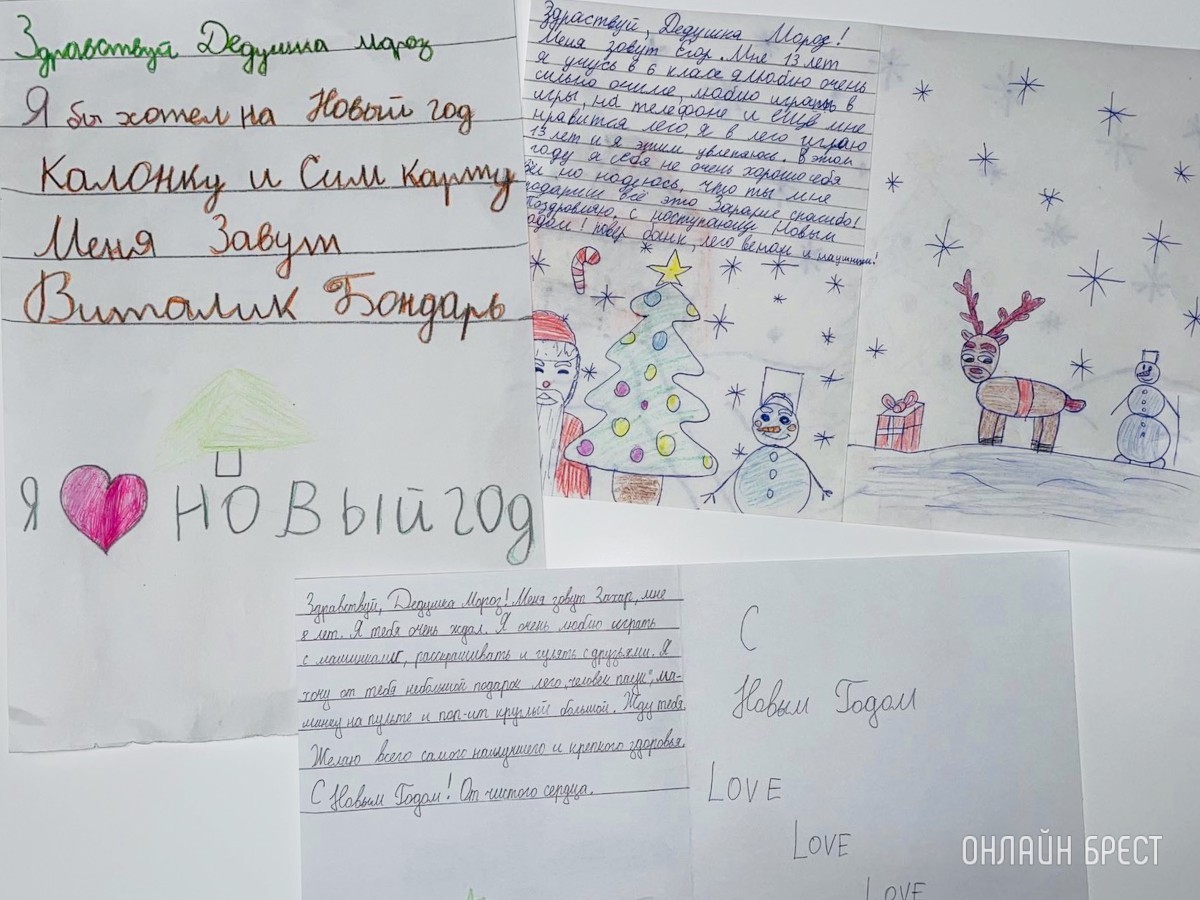 Здравствуй Дедушка мороз
Я бы хотел на Новый год
Калонку и Сим карту
Меня Завут
Виталик Бондарь
Я НОВЫЙ ГОД
Здраствуй, Дедушка Мороз!
Меня зовут Егор. Мне 13 лет
я учусь в 6 класе люблю очень
сильно аниме, люблю играть в
игры, на телефоне и еще мне
нравится лего, я в лего играю
13 лет и я этим увлекаюсь. В этом
году я себя не очень хорошо себя
но надеюсь, что ты мне
подариш всё это Зарание спасибо!
Поздровляю, с наступающим Новым
годом! повер банк, лего веном и наушники!
Здравствуй, Дедушка Мороз! Меня зовут Захар, мне
8 лет. Я тебя очень ждал. Я очень люблю играть
с машинками, раскрашивать и гулять с друзьями. Я
хочу от тебя небольшой подарок лего „человек паук", ма-
шинку на пульте и поп-ит круглый большой. Жду тебя.
Желаю всего самого наилучшего и крепкого здоровья.
С Новым Годом! От чистого сердца.
С
Новым Годом
LOVE
LOVE
LOVE
ОНЛАЙН БРЕСТ